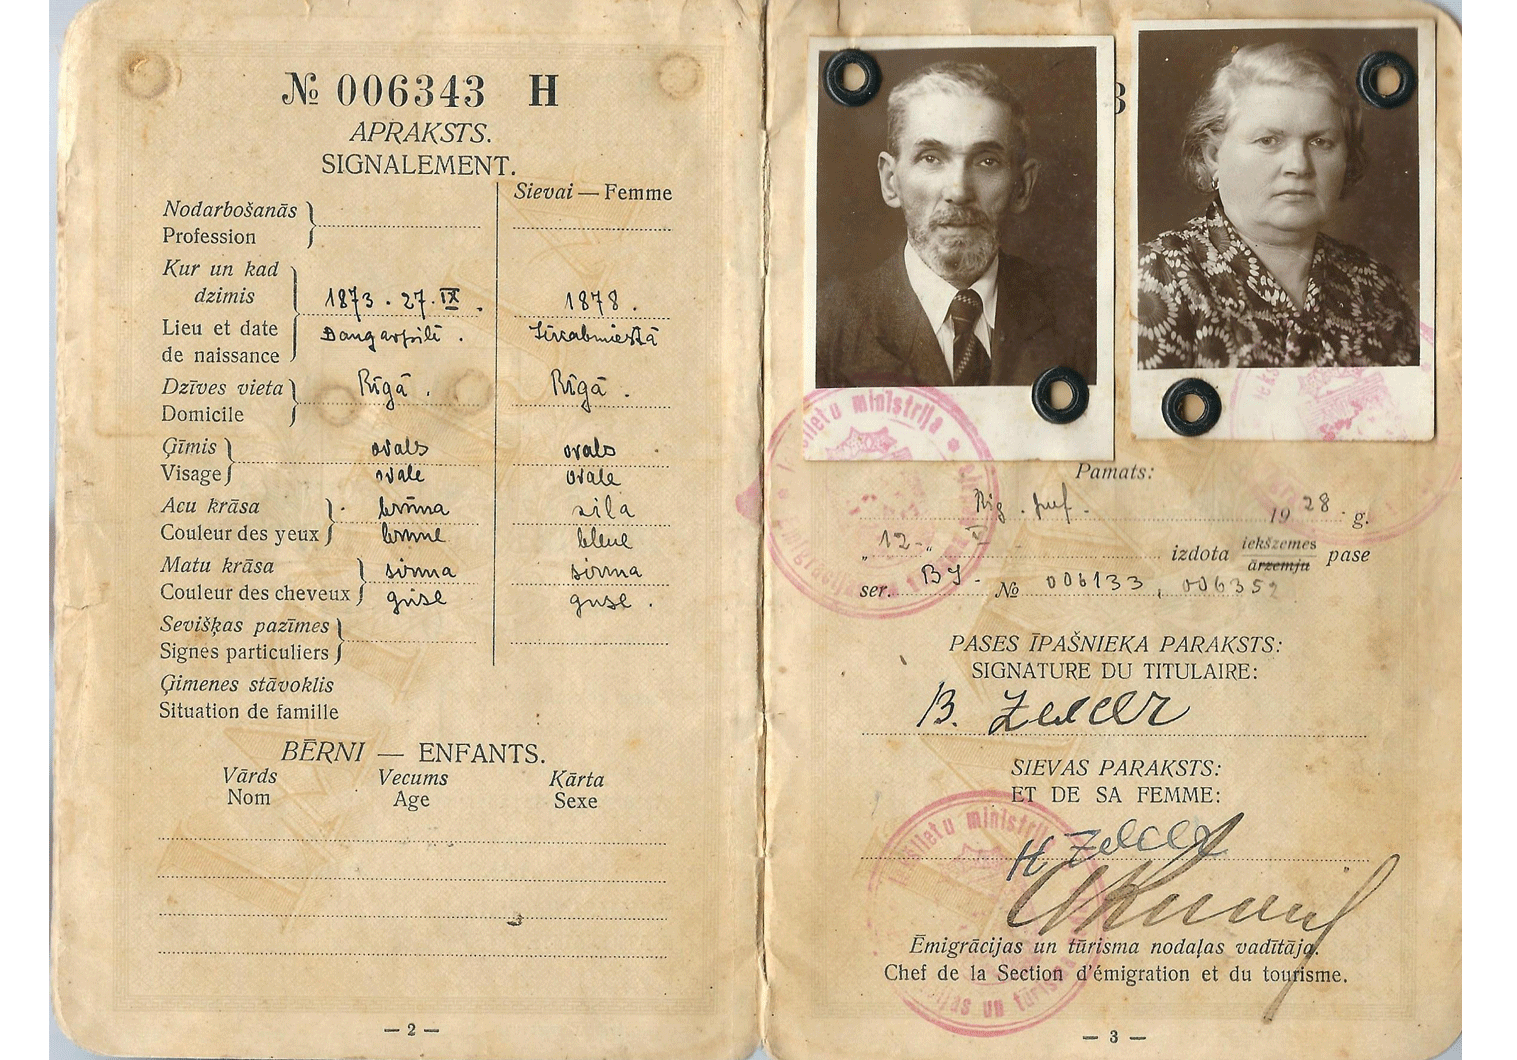 № 006343 H
APRAKSTS.
SIGNALEMENT.
Sievai — Femme
Nodarbošanās
Profession
Kur un kad
dzimis
1873. 27. IX.
1878.
Lieu et date
de naissance
Daugavpilī.
Dzīves vieta
Domicile
Rīgā.
Rīgā.
Ģīmis
ovals
ovals
Visage
ovale
ovale
Acu krāsa
brūna
zila
Couleur des yeux
brune
bleue
Matu krāsa
sirma
sirma
Couleur des cheveux
grise
grise.
Sevišķas pazīmes
Signes particuliers
Ģimenes stāvoklis
Situation de famille
BĒRNI — ENFANTS.
Vārds Vecums Kārta
Nom Age Sexe
— 2 —
ministrija
Pamats:
Rīg. pref. 1928. g.
"12" izdota iekšzemes ārzemju pase
ser. BJ. № 006133, 006352
PASES ĪPAŠNIEKA PARAKSTS:
SIGNATURE DU TITULAIRE:
B.
SIEVAS PARAKSTS:
ET DE SA FEMME:
H
Ēmigrācijas un tūrisma nodaļas vadītāja.
Chef de la Section d'émigration et du tourisme.
— 3 —